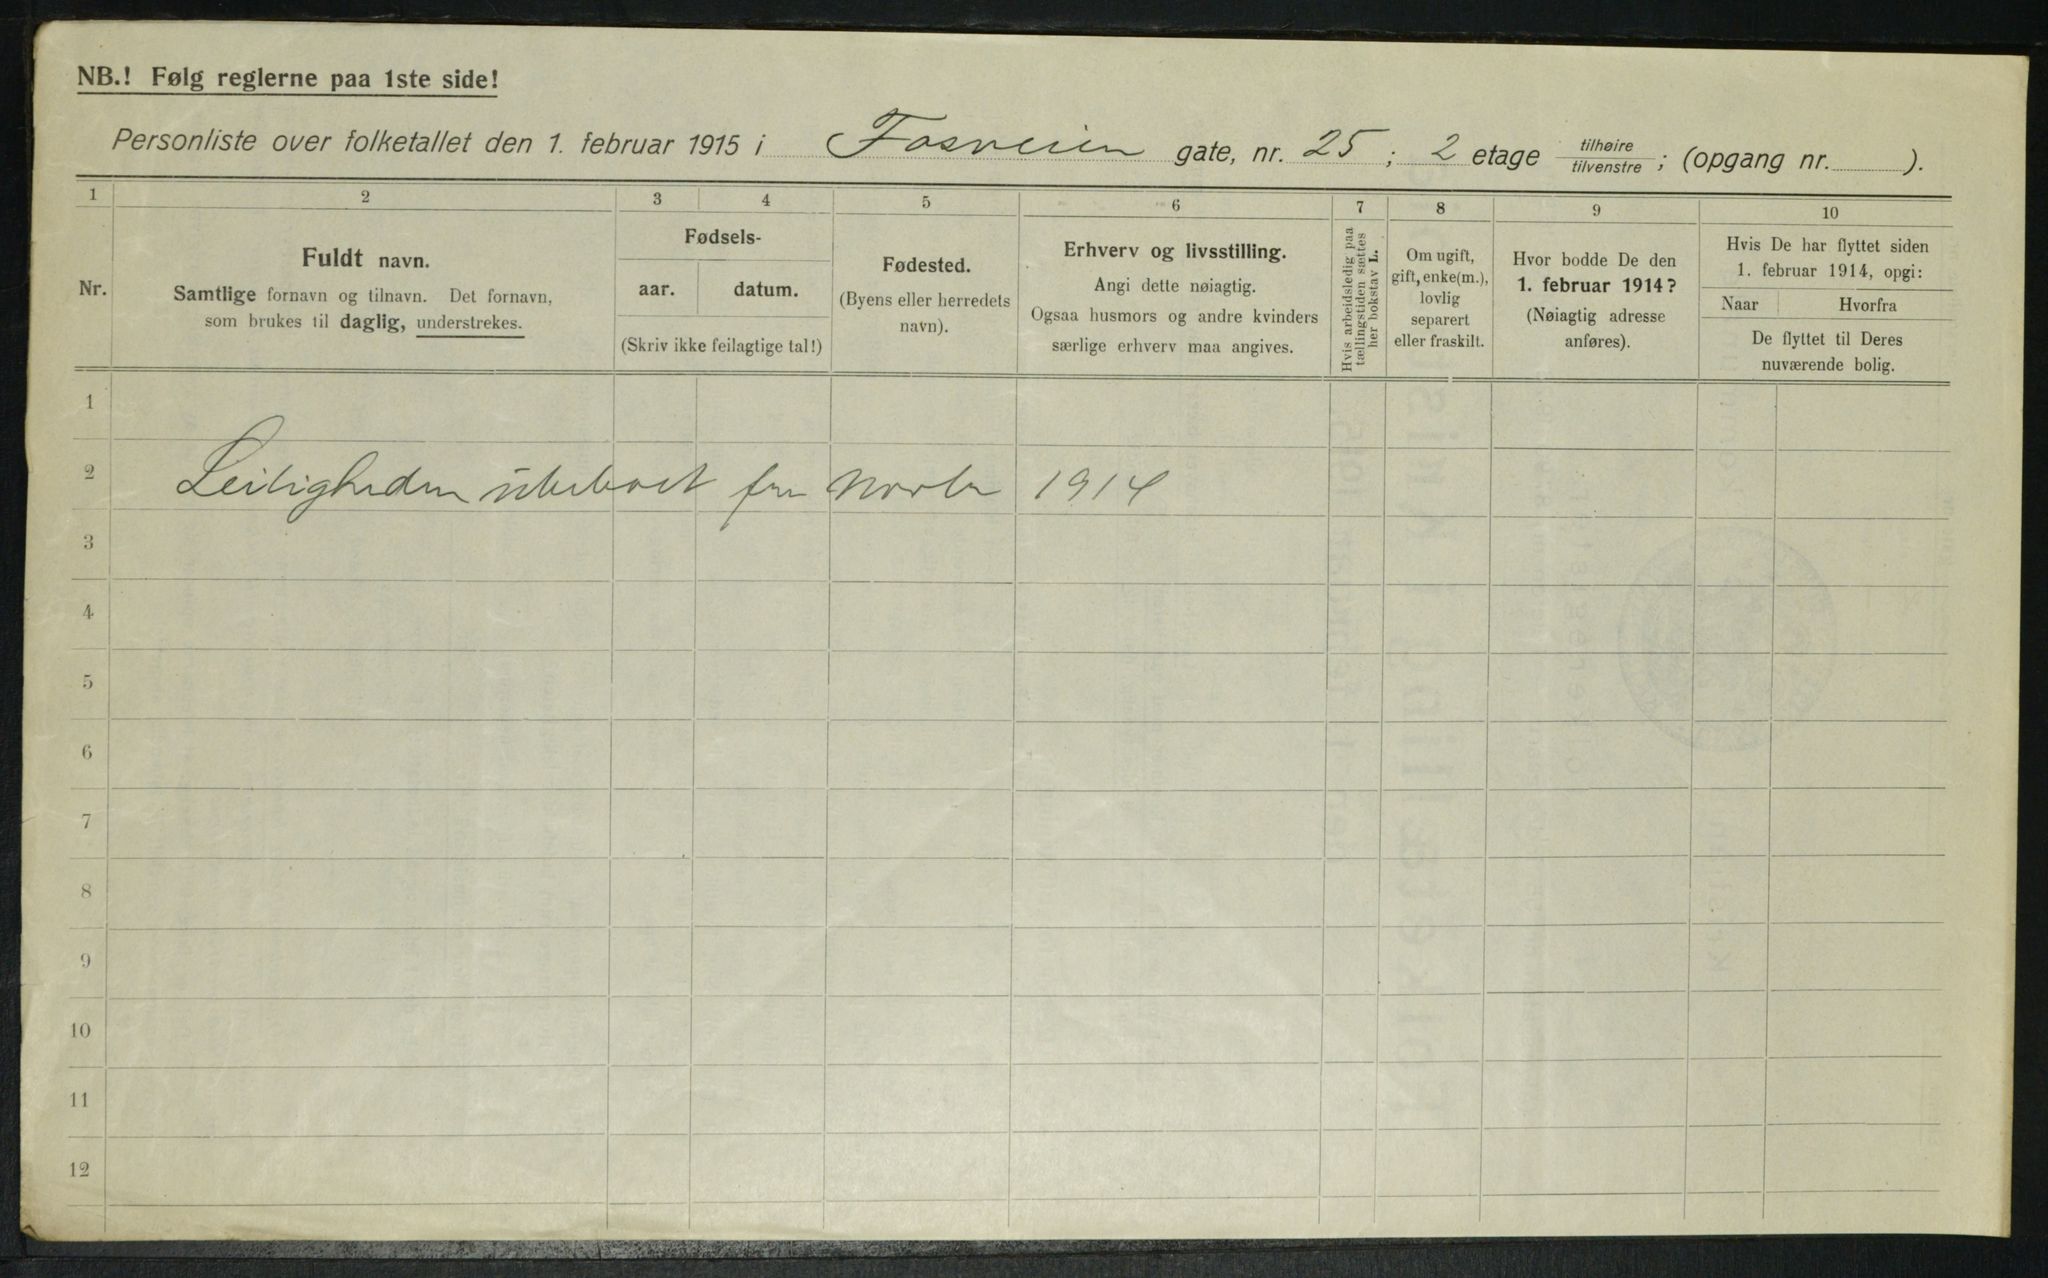 NB.! Følg reglerne paa 1ste side!
Personliste over folketallet den 1. februar 1915 i Fosveien gate, nr. 25 ; 2 etage tilhøire tilvenstre ; (opgang nr. ).
1 2 3 4 5 6 7 8 9 10
Nr.
Fuldt navn.
Samtlige fornavn og tilnavn. Det fornavn,
som brukes til daglig, understrekes.
Fødsels-
aar. datum.
(Skriv ikke feilagtige tal!)
Fødested.
(Byens eller herredets
navn).
Erhverv og livsstilling.
Angi dette nøiagtig.
Ogsaa husmors og andre kvinders
særlige erhverv maa angives.
Hvis arbeidsledig paa
tællingstiden sættes
her bokstav L.
Om ugift,
gift, enke(m.),
lovlig
separert
eller fraskilt.
Hvor bodde De den
1. februar 1914?
(Nøiagtig adresse
anføres).
Hvis De har flyttet siden
1. februar 1914, opgi:
Naar Hvorfra
De flyttet til Deres
nuværende bolig.
1
2 Leiligheden ubeboet 1914
3
4
5
6
7
8
9
10
11
12